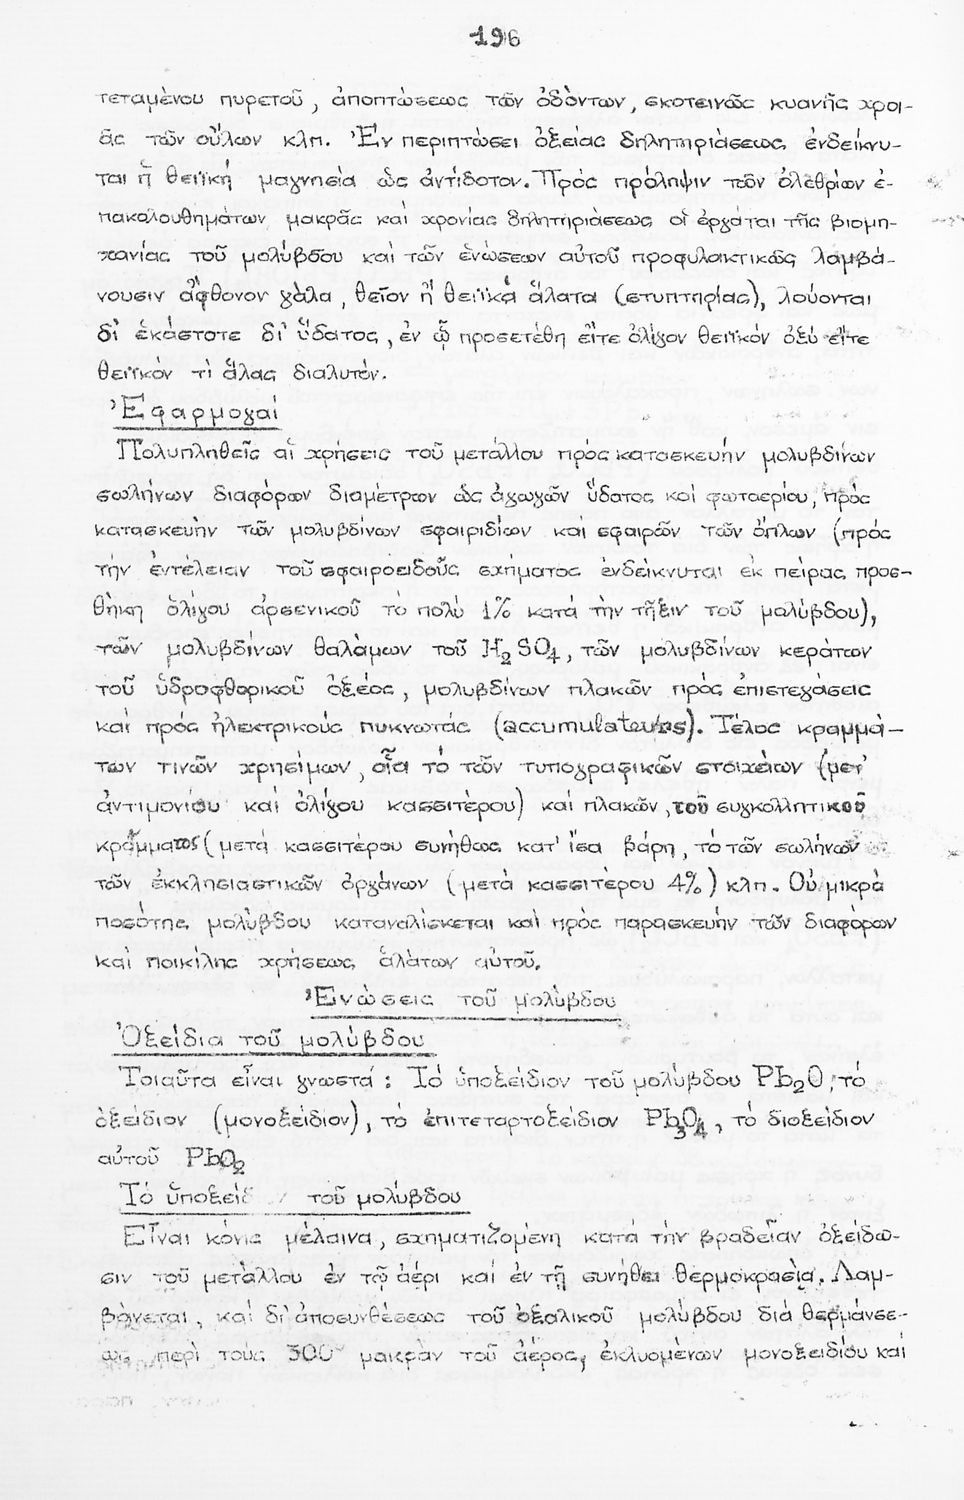 196
τεταμένου πυρετοῦ, ἀποπτώσεως τῶν ὀδόντων, σκοτεινῶς κυανῆς χροι-
ᾶς τῶν οὔλων κλπ. Ἐν περιπτώσει ὀξείας δηλητηριάσεως ἐνδείκνυ-
ται ἡ θειϊκή μαγνησία ὡς ἀντίδοτον. Πρός πρόληψιν τῶν ὀλεθρίων ἐ-
πακολουθημάτων μακρᾶς καί χρονίας δηλητηριάσεως οἱ ἐργάται τῆς βιομη-
χανίας τοῦ μολύβδου καί τῶν ἑνώσεων αὐτοῦ προφυλακτικῶς λαμβά-
νουσιν ἄφθονον γάλα, θεῖον ἤ θειϊκά ἅλατα (στυπτηρίας), λούονται
δι' ἑκάστοτε δι' ὕδατος, ἐν ᾧ προσετέθη εἴτε ὀλίγον θειϊκόν ὀξύ εἴτε
θειϊκόν τι ἅλας διαλυτόν.
Ἐφαρμογαί
Πολυπληθεῖς αἱ χρήσεις τοῦ μετάλλου πρός κατασκευήν μολυβδίνων
σωλήνων διαφόρων διαμέτρων ὡς ἀγωγῶν ὕδατος καί φωταερίου, πρός
κατασκευήν τῶν μολυβδίνων σφαιριδίων καί σφαιρῶν τῶν ὅπλων (πρός
τήν ἐντέλειαν τοῦ σφαιροειδοῦς σχήματος ἐνδείκνυται ἐκ πείρας προσ-
θήκη ὀλίγου ἀρσενικοῦ τό πολύ 1% κατά τήν τῆξιν τοῦ μολύβδου),
τῶν μολυβδίνων θαλάμων τοῦ H₂SO₄, τῶν μολυβδίνων κεράτων
τοῦ ὑδροφθορικοῦ ὀξέος, μολυβδίνων πλακῶν πρός ἐπιστεγάσεις
καί πρός ἠλεκτρικούς πυκνωτάς (accumulateurs). Τέλος κραμμά-
των τινῶν χρησίμων, οἷα τό τῶν τυπογραφικῶν στοιχείων (μετ'
ἀντιμονίου καί ὀλίγου κασσιτέρου) καί πλακῶν, τοῦ συγκολλητικοῦ
κράμματος (μετά κασσιτέρου συνήθως κατ' ἴσα βάρη, τό τῶν σωλήνων
τῶν ἐκκλησιαστικῶν ὀργάνων (μετά κασσιτέρου 4%) κλπ. Οὐ μικρά
ποσότης μολύβδου καταναλίσκεται καί πρός παρασκευήν τῶν διαφόρων
καί ποικίλης χρήσεως ἁλάτων αὐτοῦ.
Ἑνώσεις τοῦ μολύβδου
Ὀξείδια τοῦ μολύβδου
Τοιαῦτα εἶναι γνωστά: Τό ὑποξείδιον τοῦ μολύβδου Pb₂O, τό
ὀξείδιον (μονοξείδιον), τό ἐπιτεταρτοξείδιον Pb₃O₄, τό διοξείδιον
αὐτοῦ PbO₂
Τό ὑποξείδ τοῦ μολύβδου
Εἶναι κόνις μέλαινα, σχηματιζομένη κατά τήν βραδεῖαν ὀξείδω-
σιν τοῦ μετάλλου ἐν τῷ ἀέρι καί ἐν τῇ συνήθει θερμοκρασίᾳ. Λαμ-
βάνεται, καί δι' ἀποσυνθέσεως τοῦ ὀξαλικοῦ μολύβδου διά θερμάνσε-
ως περί τούς 300° μακράν τοῦ ἀέρος, ἐκλυομένων μονοξειδίου καί